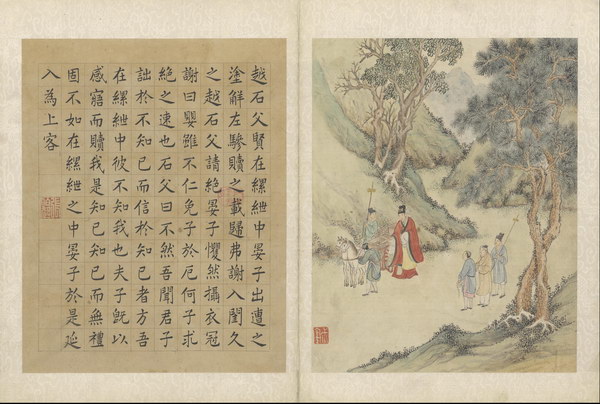 越石父賢在縲紲中晏子出遭之
塗解左驂贖之載歸弗謝入閨久
之越石父請絕晏子懼然攝衣冠
謝曰嬰雖不仁免子於厄何子求
絕之速也石父曰不然吾聞君子
詘於不知己而信於知己者方吾
在縲紲中彼不知我也夫子既以
感寤而贖我是知己知己而無禮
固不如在縲紲之中晏子於是延
入為上客